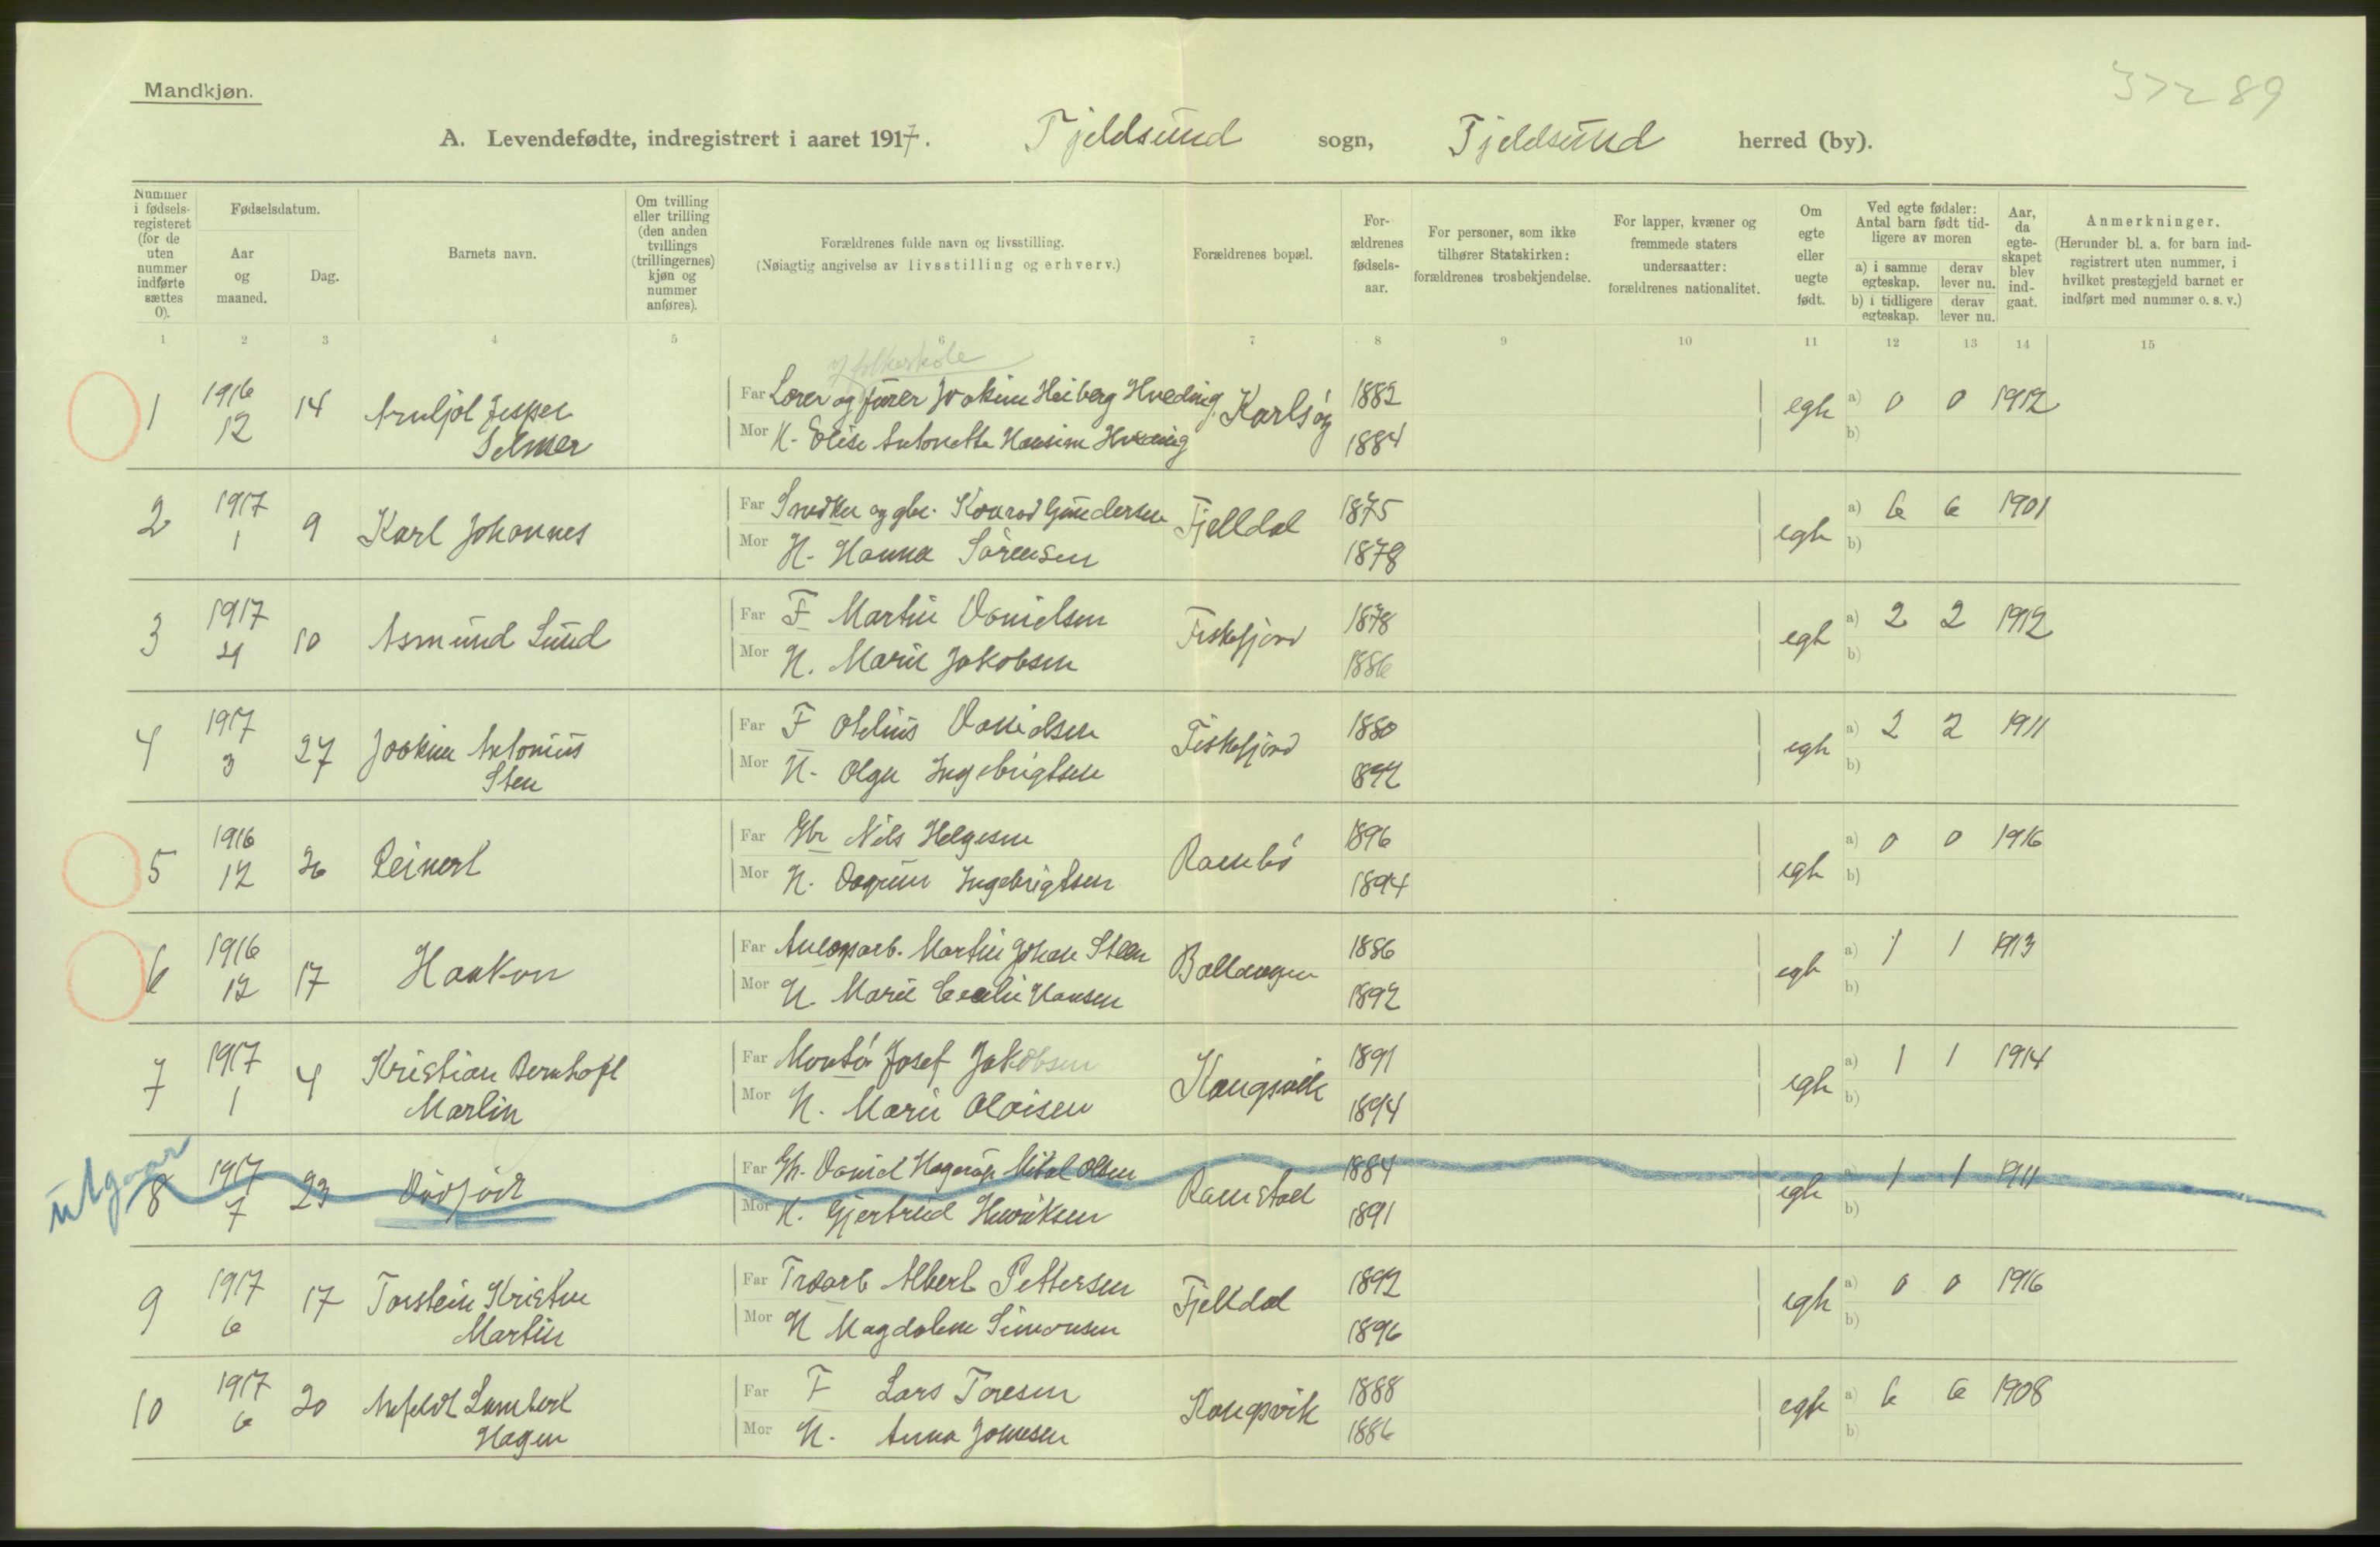 37289
Mandkjøn.
A. Levendefødte, indregistrert i aaret 1917. Tjeldsund sogn, Tjeldsund herred (by).
Nummer i fødselsregisteret (for de uten nummer indførte sættes 0).
Fødselsdatum.
Aar og maaned.
Dag.
Barnets navn.
Om tvilling eller trilling (den anden tvillings (trillingernes) kjøn og nummer anføres).
Forældrenes fulde navn og livsstilling.
(Nøiagtig angivelse av livsstilling og erhverv.)
Forældrenes bopæl.
Forældrenes fødselsaar.
For personer, som ikke tilhører Statskirken: forældrenes trosbekjendelse.
For lapper, kvæner og fremmede staters undersaatter: forældrenes nationalitet.
Om egte eller uegte født.
Ved egte fødsler: Antal barn født tidligere av moren
a) i samme egteskap. derav lever nu.
b) i tidligere egteskap. derav lever nu.
Aar, da egteskapet blev indgaat.
Anmerkninger.
(Herunder bl. a. for barn indregistrert uten nummer, i hvilket prestegjeld barnet er indført med nummer o. s. v.)
1 2 3 4 5 6 7 8 9 10 11 12 13 14 15
folkeskole
1 1916 12 14 Arnljot Jesper Selmer
Far Lærer og fører Joakim Heiberg Hveding Karlsøy 1882 egte a) 0 0 1912
Mor H. Elise Antonette Hansine Hveding 1884 b)
2 1917 1 9 Karl Johannes
Far Snedker og gbr. Konrad Gundersen Fjelldal 1875 egte a) 6 6 1901
Mor H. Hanna Sørensen 1878 b)
3 1917 4 10 Asmund Sund
Far F Martin Danielsen Fiskefjord 1878 egte a) 2 2 1912
Mor H. Marie Jakobsen 1886 b)
4 1917 3 27 Joakim Antonius Sten
Far F Otelius Danielsen Fiskefjord 1880 egte a) 2 2 1911
Mor H. Olga Ingebrigtsen 1892 b)
5 1916 12 26 Reinert
Far Gbr Nils Helgesen Rambø 1896 egte a) 0 0 1916
Mor H. Dagrun Ingebrigtsen 1894 b)
6 1916 12 17 Haakon
Far Anlægsarb. Martin Johan Steen Ballangen 1886 egte a) 1 1 1913
Mor H. Marie Cecelie Hansen 1892 b)
7 1917 1 4 Kristian Bernhoft Martin
Far Montør Josef Jakobsen Kongsvik 1891 egte a) 1 1 1914
Mor H. Marie Olaisen 1894 b)
utgaar
8 1917 7 23 Dødfødt
Far Gbr. Daniel Hagerup Mikal Olsen Ramstad 1884 egte a) 1 1 1911
Mor H. Gjertrud Henriksen 1891 b)
9 1917 6 17 Torstein Kristen Martin
Far Albert Pettersen Fjelldal 1892 egte a) 0 0 1916
Mor H Magdalene Simonsen 1896 b)
10 1917 6 20 Lambert Hagen
Far F Lars Toresen Kongsvik 1888 egte a) 6 6 1908
Mor H. Anna Johnsen 1886 b)